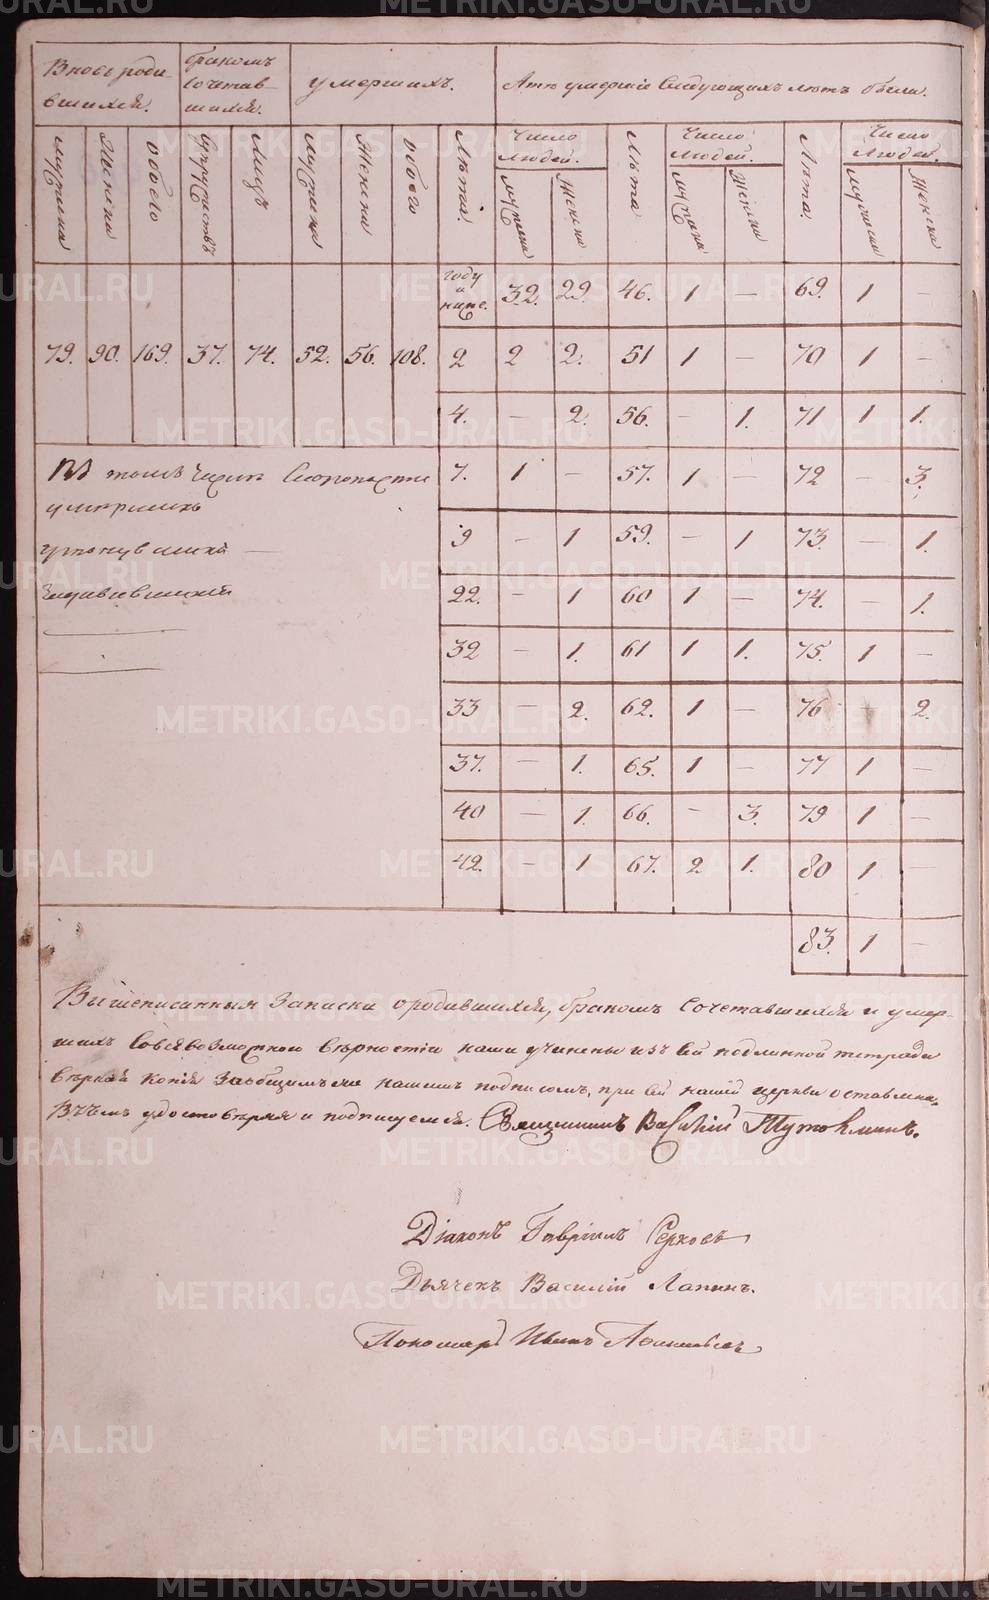 Вновь роди-
вшихся.
бракомъ
сочетав-
шихся.
умершихъ.
А тѣ умершіе следующихъ лѣтъ были.
мужеска
Женска
обоего
супружествъ
лицъ
мужеска
Женска
обоего
Лѣта.
Число
людей.
мужеска
Женска
Лѣта
Число
людей.
мужска
Женска
Лѣта.
Число
людей.
мужеска
Женска
году
и
ниже. 32. 29. 46. 1 — 69. 1 —
79. 90. 169. 37. 74. 52. 56. 108. 2 2 2. 51 1 — 70 1 —
4. — 2. 56. — 1. 71 1 1.
7. 1 — 57. 1 — 72 — 3.
9 — 1 59. — 1 73. — 1.
22. — 1 60 1 — 74. — 1.
32 — 1. 61 1 1. 75. 1 —
33 — 2. 62. 1 — 76 2.
37. — 1. 65. 1 — 77 1 —
40 — 1. 66. — 3. 79 1 —
42. — 1 67. 2 1. 80 1 —
83. 1 —
В томъ числѣ
умершихъ
утонувшихъ —
задавившихся
Вышеписанныя записки о родившихся, бракомъ сочетавшихся и умер-
шихъ со всевозможною вѣрностію нами учинены изъ сей подлинной тетради
вѣрная копія за общимъ нашимъ подписомъ, при сей нашей церкви оставлена,
В чемъ удостовѣряя и подписуемся. Священникъ Василій Тутолминъ.
Діаконъ Гавріилъ Серковъ
Дьячекъ Василій Лапинъ.
Пономарь Иванъ
METRIKI.GASO-URAL.RU